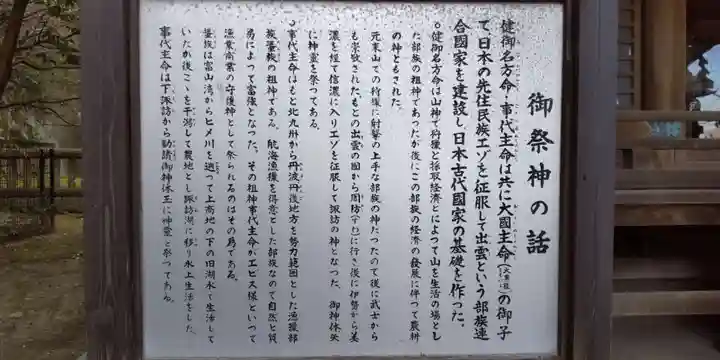 御祭神の話
健御名方命、事代主命は共に大國主命(大黒様)の御子
で日本の先住民族エゾを征服して出雲という部族連
合國家を建設し日本古代國家の基礎を作った。
○健御名方命は山神で狩猟と採取経済とによって山を生活の場とし
た部族の祖神であったが後にこの部族の経済の発展に伴って農耕
の神ともされた。
元来山での狩猟に射撃の上手な部族の神だったので後に武士から
も崇敬されたもとの出雲の国から周防(すわ)に行き後に伊勢から美
濃を経て信濃に入りエゾを征服して諏訪の神となった。御神体矢
に神霊を祭ってある。
○事代主命はもと北九州から丹波丹後地方を勢力範囲とした漁撈部
族蜑族の祖神である。航海漁猟を得意とした部族なので自然と貿
易によって富強となった。その祖神事代主命がエビス様といって
漁業商業の守護神として祭られるのはその為である。
蜑族は富山湾からヒメ川を遡って上高地の下の旧湖水で生活して
いたが後こゝを干潟して農地とし諏訪湖に移り水上生活をした。
事代主命は下諏訪から勧請御神体玉に神霊を祭ってある。